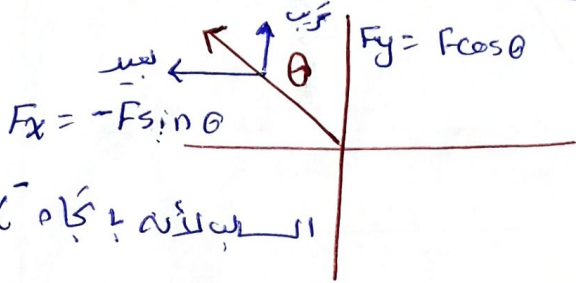 قريب
Fy = Fcosθ
بعيد
θ
Fx = -Fsinθ
السالب لأنه باتجاه x-